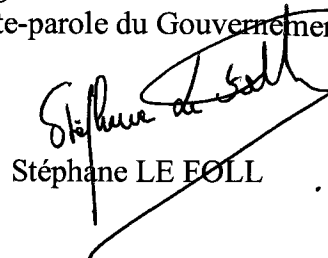 te-parole du Gouvernemen
Stéphane Le Foll
Stéphane LE FOLL